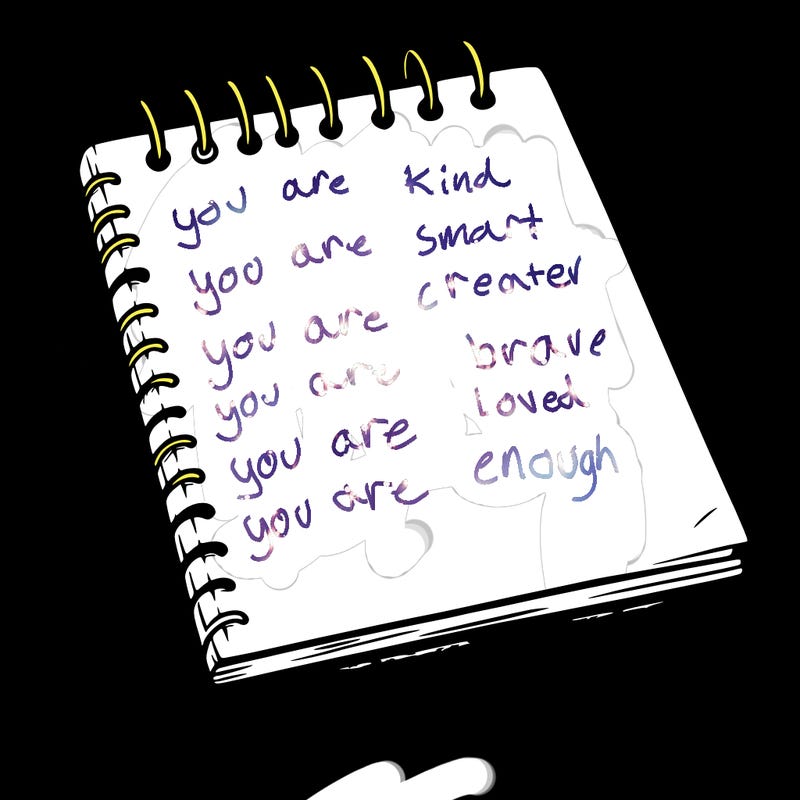 you are kind
you are smart
you are creater
you are brave
you are loved
you are enough